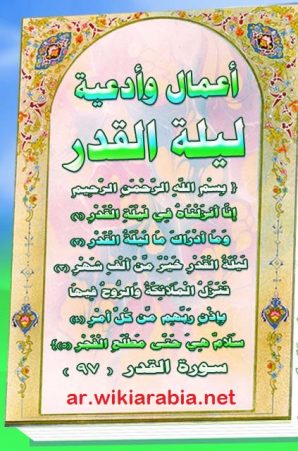 أعمال وأدعية
ليلة القدر
{ بِسْمِ اللهِ الرَّحْمَنِ الرَّحِيمِ
إِنَّا أَنزَلْنَاهُ فِي لَيْلَةِ الْقَدْرِ (١)
وَمَا أَدْرَاكَ مَا لَيْلَةُ الْقَدْرِ (٢)
لَيْلَةُ الْقَدْرِ خَيْرٌ مِّنْ أَلْفِ شَهْرٍ (٣)
تَنَزَّلُ الْمَلَائِكَةُ وَالرُّوحُ فِيهَا
بِإِذْنِ رَبِّهِم مِّن كُلِّ أَمْرٍ (٤)
سَلَامٌ هِيَ حَتَّى مَطْلَعِ الْفَجْرِ (٥)}
سورة القدر ( ٩٧ )
ar.wikiarabia.net